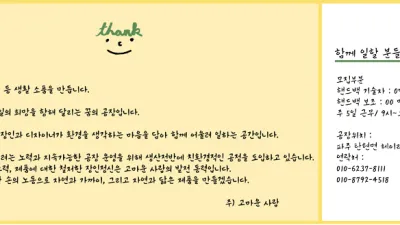 thank
등 생활 소품을 만듭니다.
일의 희망을 향해 달리는 꿈의 공장입니다.
장인과 디자이너가 환경을 생각하는 마음을 담아 함께 어울려 일하는 공간입니다.
려는 노력과 지속가능한 공장 운영을 위해 생산전반에 친환경적인 공정을 도입하고 있습니다.
노력, 제품에 대한 철저한 장인정신은 고마운사랑의 발전 동력입니다.
손의 노동으로 자연과 가까이, 그리고 자연과 닮은 제품을 만들겠습니다.
주) 고마운 사람
함께 일할 분들
모집부문
핸드백 기술자 :
핸드백 보조 : 00
주 5일 근무/ 9시-
공장위치 :
파주 탄현면
연락처 :
010-6237-8111
010-8792-4518